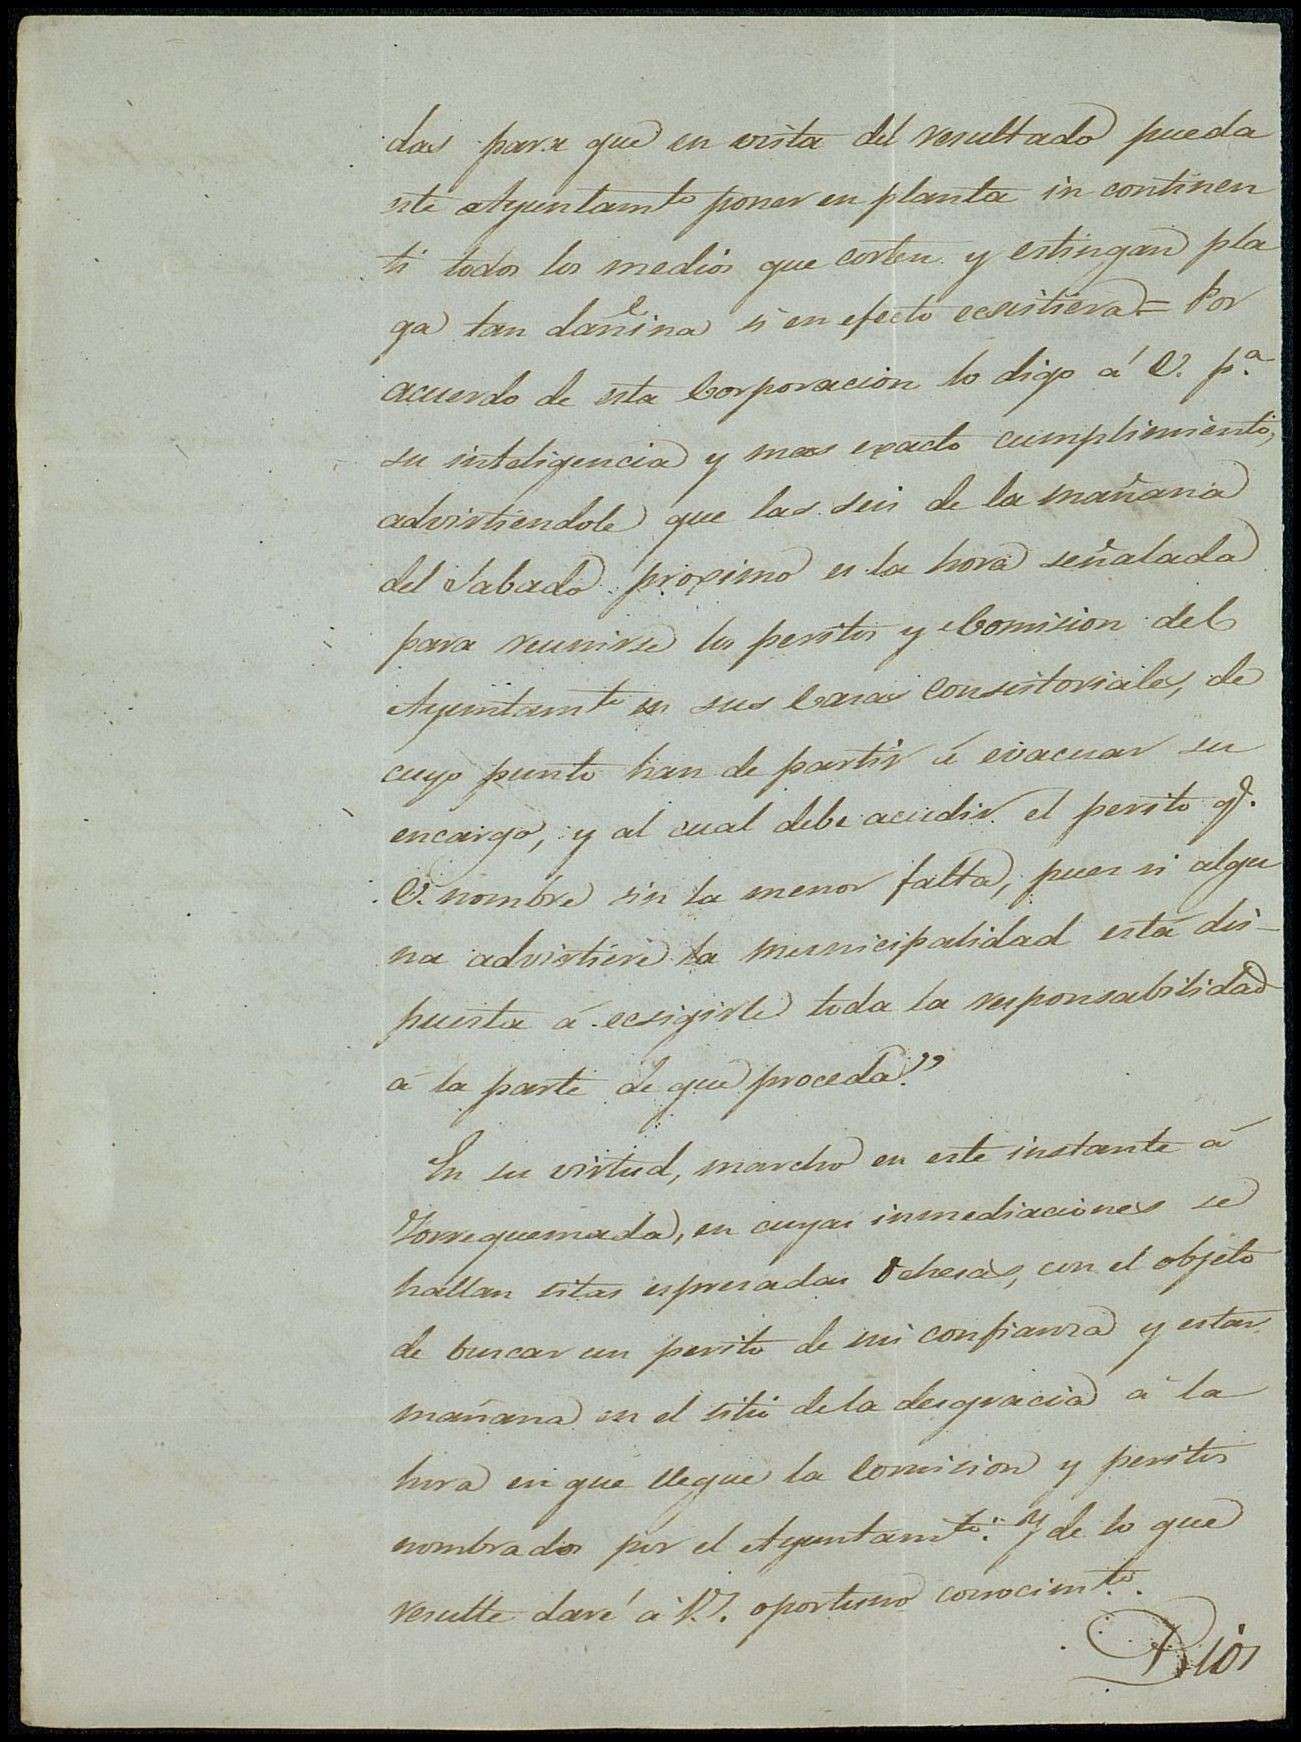 das para que en vista del resultado pueda
este Ayuntamto poner en planta in continen
ti todos los medios que corten y estingan pla
ga tan dañina si en efecto ecsistiera = Por
acuerdo de esta Corporacion lo digo á V. pa.
su inteligencia y mas exacto cumplimiento,
advirtiendole que las seis de la mañana
del Sabado proximo es la hora señalada
para reunirse los peritos y Comision del
Ayuntamto en sus Casas Consistoriales, de
cuyo punto han de partir á evacuar su
encargo, y al cual debe acudir el perito q.
V. nombre sin la menor falta, pues si algu
na advirtiere la municipalidad está dis-
puesta á ecsigirle toda la responsabilidad
á la parte de que proceda."
En su virtud, marcho en este instante á
Torrequemada, en cuyas inmediaciones se
hallan sitas espresadas dehesas, con el objeto
de buscar un perito de mi confianza y estar
mañana en el sitio de la desgracia á la
hora en que llegue la Comision y peritos
nombrados por el Ayuntamto. Y de lo que
resulte daré á V.S. oportuno conocimto.
Dios